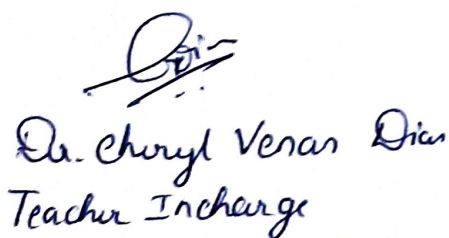 Dr. Cheryl Venan Dias
Teacher Incharge